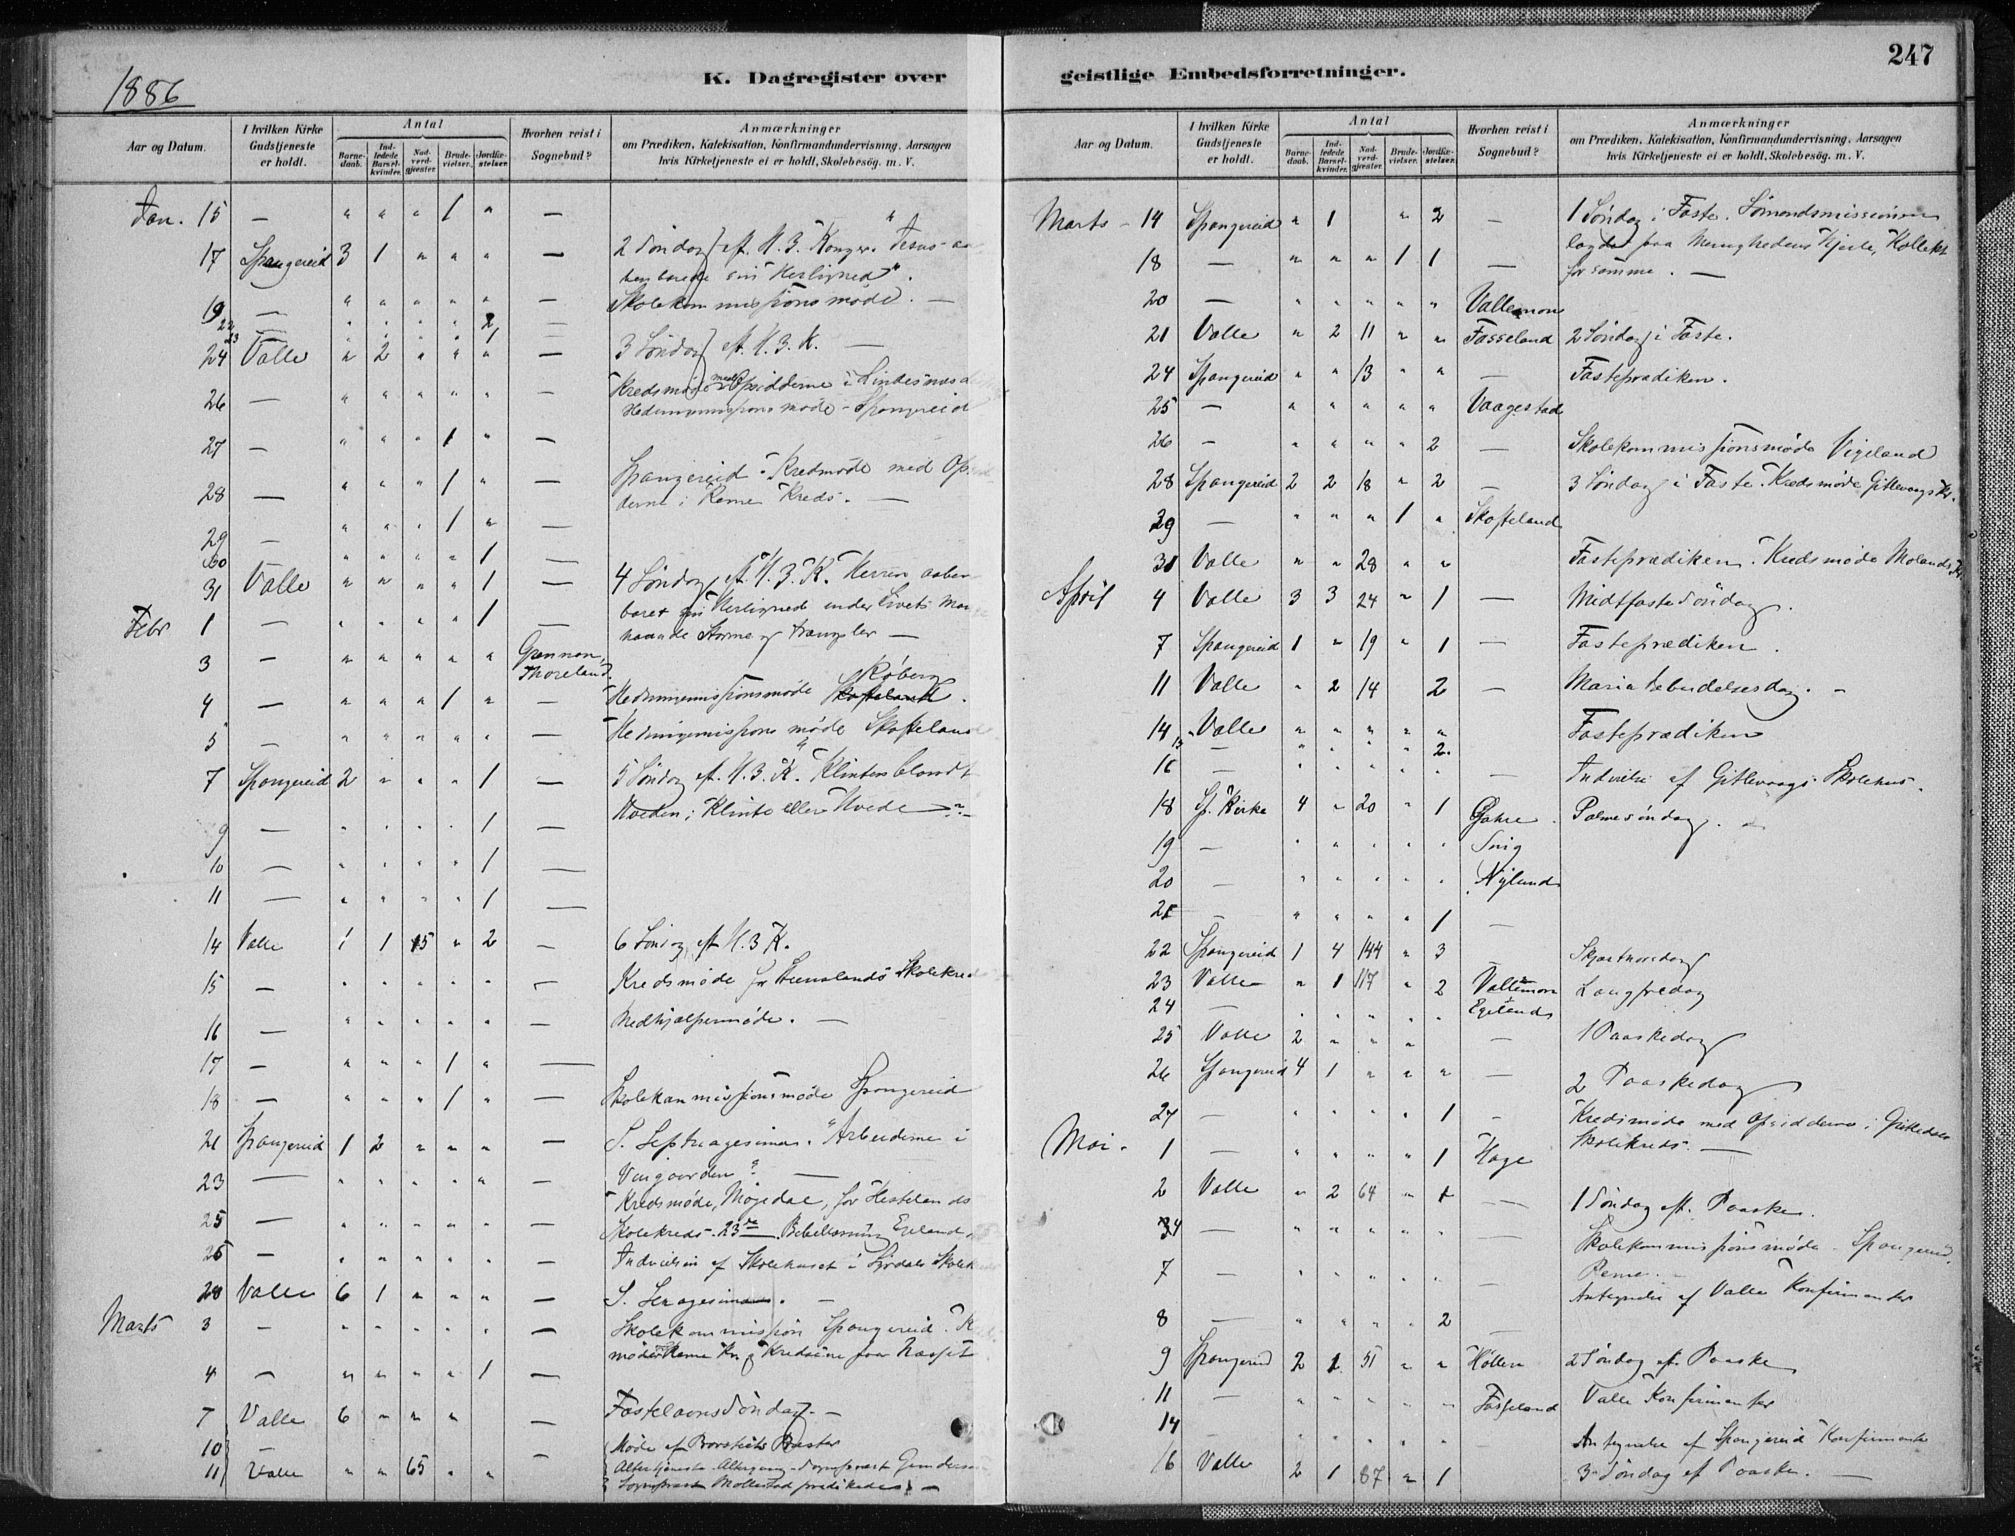 1886
K. Dagregister over
Aar og Datum.
I hvilken Kirke Gudstjeneste er holdt.
Antal
Barne-daab.
Ind-ledede Barsel-kvinder.
Nad-verd-gjester.
Brude-vielser.
Jordfæ-stelser.
Hvorhen reist i Sognebud?
Anmærkninger
om Prædiken, Katekisation, Konfirmandundervisning, Aarsagen
hvis Kirketjeneste ei er holdt, Skolebesög. m. V.
Jan. 15 — " " " 1 " —
17 Spangereid 3 1 " " " — 2 Søndag eft. H. 3. Konger. "Jesus
sin Herlighed".
19 — " " " " " — Skolekommissionsmøde. —
22 — " " " " 2 —
23 " " " " 1
24 Valle " 2 " " " — 3 Søndag eft. H. 3. K. —
26 — " " " " " Kredsmøde med Opsidderne i Lindesnæs
Hedningemissionsmøde - Spangereid
27 — " " " 1 " —
28 — " " " 1 " Spangereid - Kredsmøde med
derne i Reme Kreds. —
29 — " " " 1 " —
30 " " " " 1 —
31 Valle " " " " 1 — 4 Søndag eft. H. 3. K. Herren aaben-
baret sin Herlighed under Livets
Febr 1 — " " " " 1 — haande Storme og Trængsler —
3 — " " " " " Grønnon, Thoreland.
4 — " " " 1 " — Hedningemissionsmøde Skofteland Røberg.
5 — " " " " " — Hedningemissionsmøde Skofteland
7 Spangereid 2 " " " 1 — 5 Søndag eft. H. 3. K. "Klinten blandt
Hveden; Klinte eller Hvede"? —
9 — " " " " 1 —
10 — " " " " 1 —
11 — " " " " 1 —
14 Valle 1 1 15 " 2 — 6 Søndag eft. H. 3 K.
15 — " " " " " — Kredsmøde for Skolekred
16 — " " " " " — Medhjælpermøde. —
17 — " " " 1 " —
18 — " " " 1 " — Skolekommissionsmøde Spangereid
21 Spangereid 1 2 " " " — S. Septuagesima. "Arbeiderne i
Vingaarden" —
23 — " " " " " — Kredsmøde, Møgedal, for Hestelands
25 — " " " " " — Skolekreds - 23de Bibellæsning Egeland
26 — " " " " " Indvielsen af Skolehuset i Skolek
28 Valle 6 1 " " " — S. Sexagesima. —
Marts 3 — " " " " " — Skolekommission Spangereid.
møder Reme Kr. og
4 — " " " " 1 —
7 Valle 6 " " " — Fastelavns Søndag. —
10 — — Møde af Provstiets Præster
11 Valle " " 65 " " Altertjeneste Altergang - Sognepræst Gunderse
Sognepræst Mollestad prædikede. —
247
geistlige Embedsforretninger.
Aar og Datum.
I hvilken Kirke Gudstjeneste er holdt.
Antal
Barne-daab.
Ind-ledede Barsel-kvinder.
Nad-verd-gjester.
Brude-vielser.
Jordfæ-stelser.
Hvorhen reist i Sognebud?
Anmærkninger
om Prædiken, Katekisation, Konfirmandundervisning, Aarsagen
hvis Kirketjeneste ei er holdt, Skolebesög. m. V.
Marts - 14 Spangereid " 1 " 2 — 1 Søndag i Faste. Sømandsmissionen
lagdes paa Menighedens Hjerte, Kollekt
18 — " " " 1 1 — for samme. —
20 — " " " " " Vallemon
21 Valle " 2 11 " " Fasseland 2 Søndag i Faste.
24 Spangereid " " 13 " " — Fasteprædiken.
25 — " " " " " Vaagestad
26 — " " " " 2 — Skolekommissionsmøde Vigeland
28 Spangereid 2 2 18 " 2 — 3 Søndag i Faste. Kredsmøde Gitlevaags Kr.
29 — " " " 1 " Skofteland
31 Valle " " 28 " " Fasteprædiken. Kredsmøde Molands Kr.
April 4 Valle 3 3 24 " 1 — Midtfaste Søndag.
7 Spangereid 1 " 19 " 1 — Fasteprædiken.
11 Valle " 2 14 2 — Maria Bebudelsesdag. -
14 Valle " " " " " Fasteprædiken
15 — " " " " 2.
16 — " " " " " — Indvielse af Gitlevaags Skolehus.
18 Sp. Kirke 4 " 20 " 1 Gahre. Palmesøndag.
19 — " " " " " Svig
20 — " " " " " Nylund
21 — " " " " 1 —
22 Spangereid 1 4 144 " 3 — Skjærthorsdag
23 Valle " 1 117 " 2 Vallemon Langfredag
24 — " " " " " Egelands
25 Valle 2 " " " — 1 Paaskedag
26 Spangereid 4 1 " " " — 2 Paaskedag
27 — " " " " 1 — Kredsmøde med Opsidderne i
Skolekreds. —
Mai. 1 — " " " " 1 Hage
2 Valle " 2 64 " 1 — 1 Søndag eft. Paaske.
4 — " " " " " — Skolekommissionsmøde - Spangereid,
7 — " " " " " — Reme. -
Antegnelse af Valle Konfirmanter
8 — " " " " 2 —
9 Spangereid 2 1 51 " " Høllen 2 Søndag eft. Paaske
11 — " " " " " Fasseland Valle Konfirmanter
14 " " " " " Antegnelse af Spangereid Konfirmanter
16 Valle 2 1 87 " 1 3 Søndag ef Paaske. —